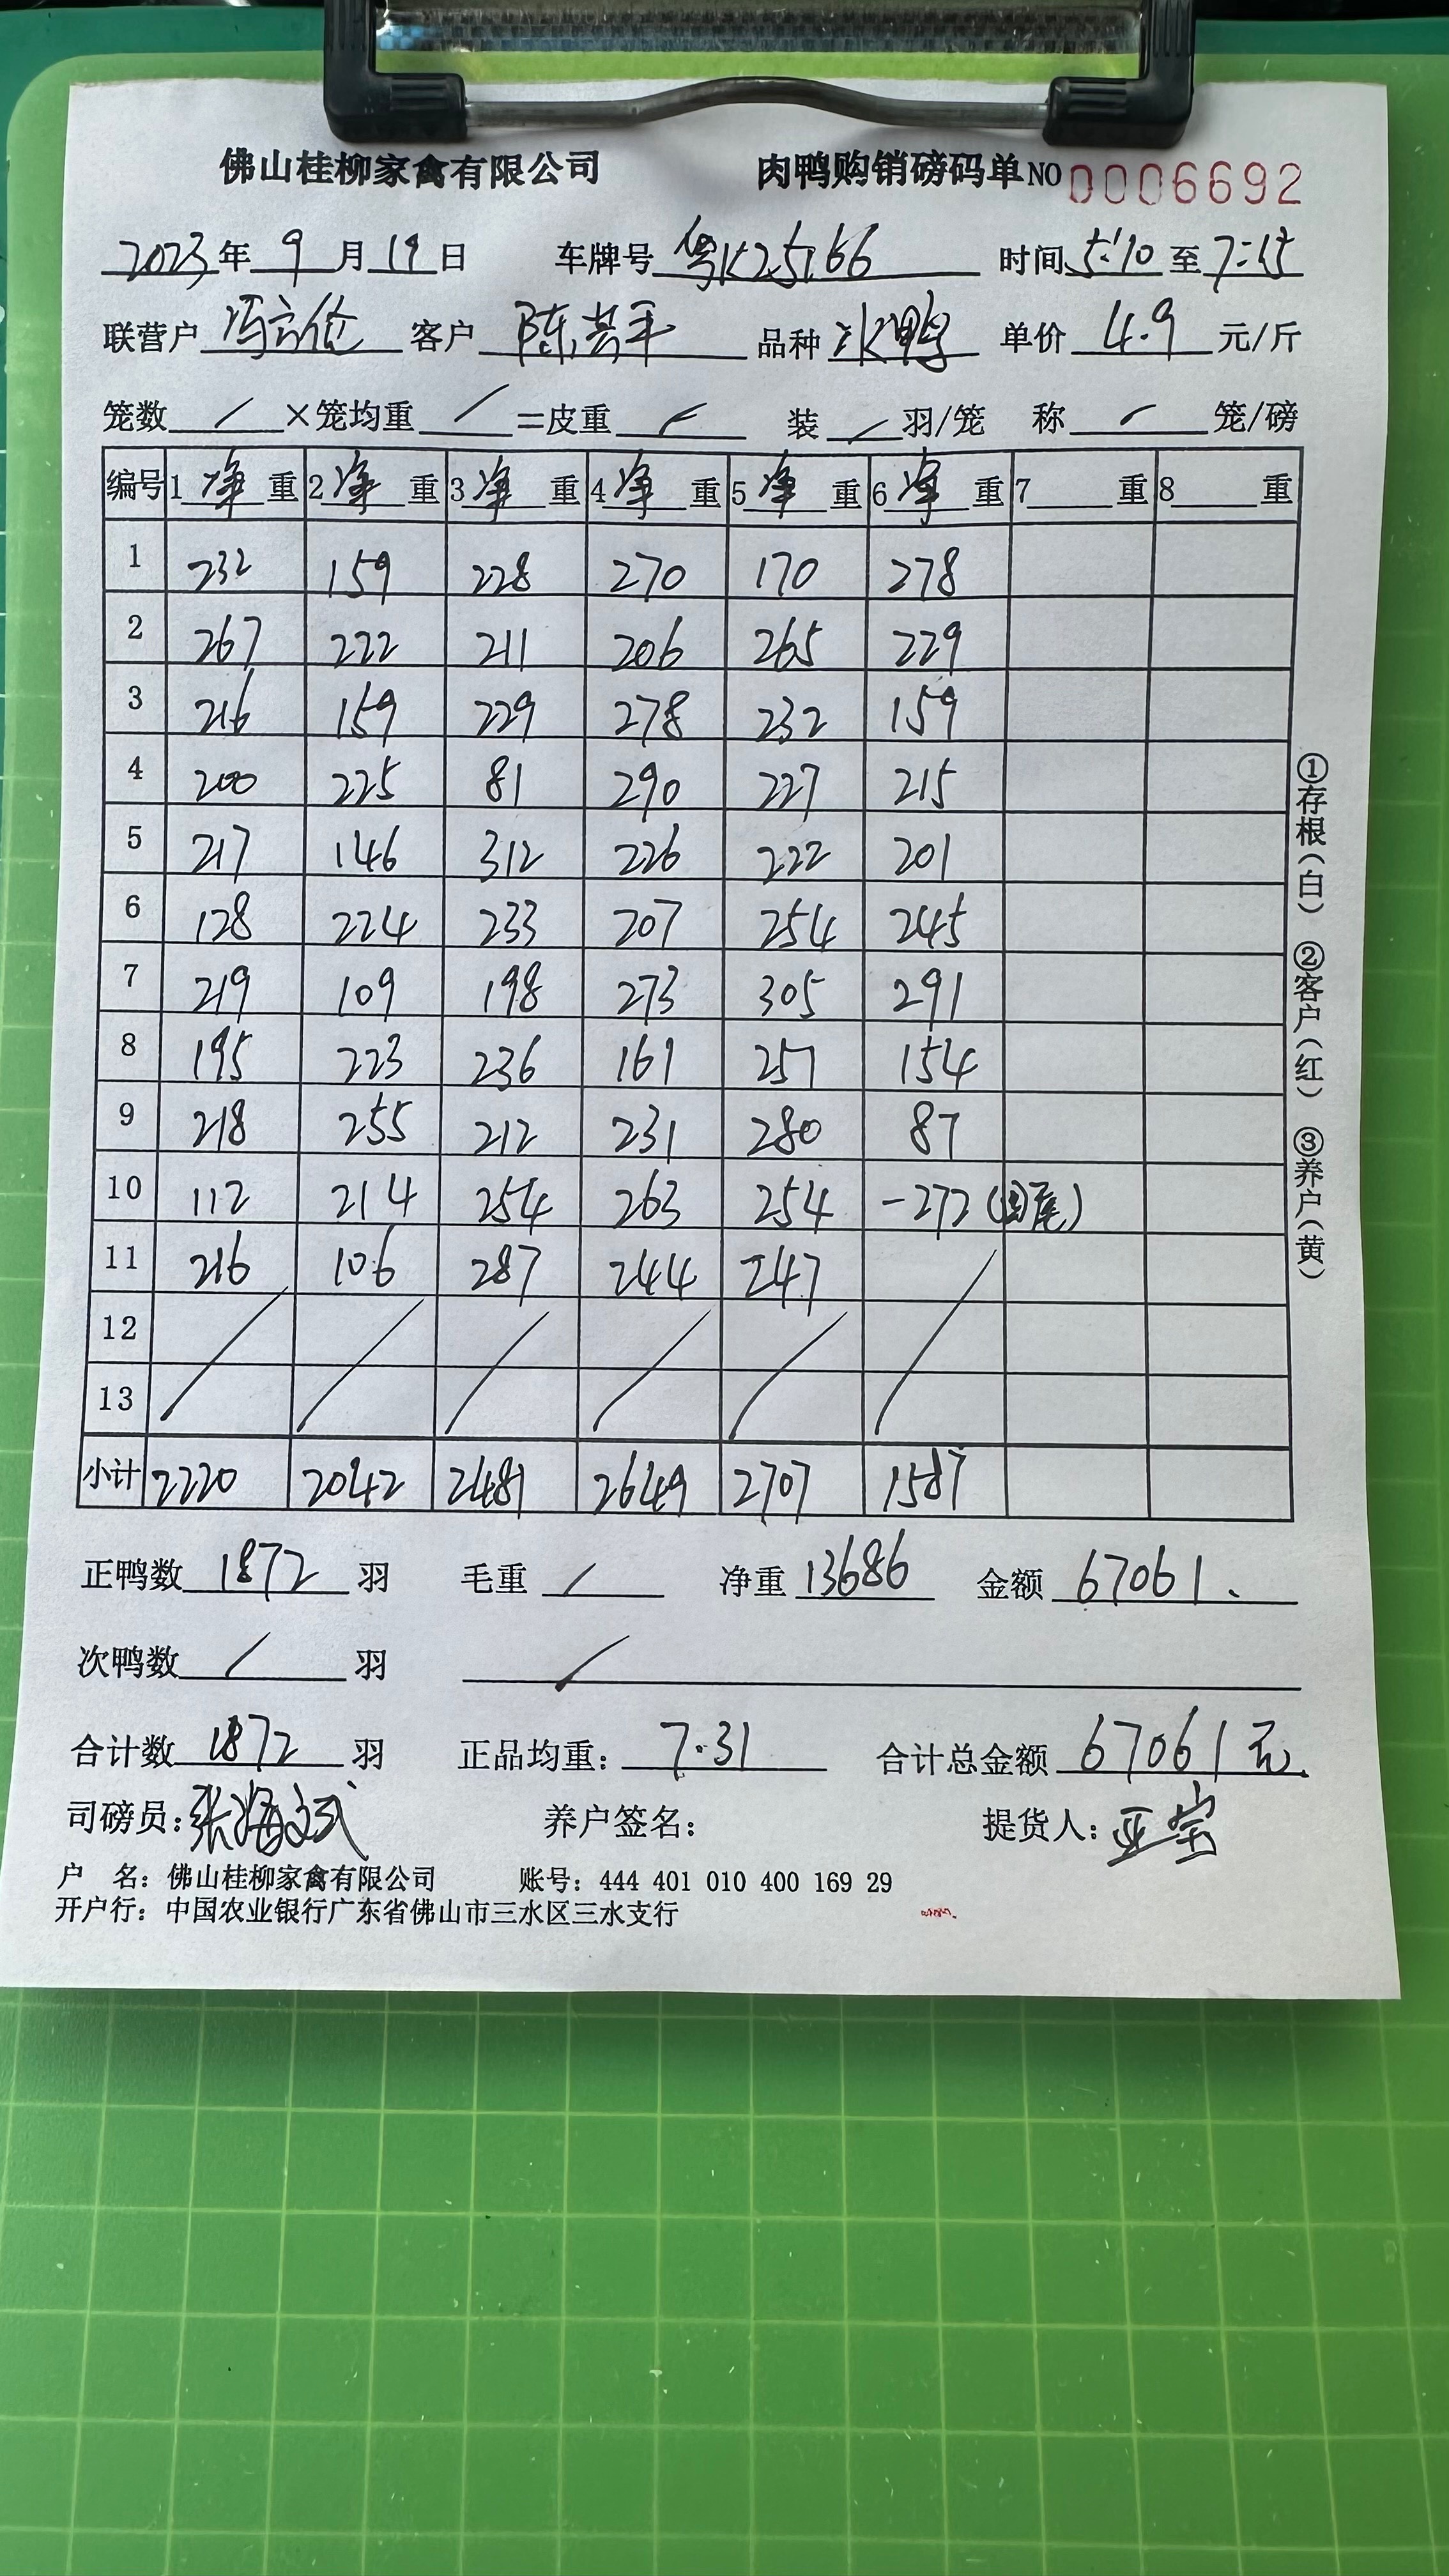 佛山桂柳家禽有限公司 肉鸭购销磅码单 NO 0006692
2023年 9 月 19 日 车牌号 粤K25166 时间 5:10 至 7:15
联营户 冯 客户 陈 平 品种 水鸭 单价 4.9 元/斤
笼数 / ×笼均重 / =皮重 / 装 / 羽/笼 称 / 笼/磅
编号 1 净 重 2 净 重 3 净 重 4 净 重 5 净 重 6 净 重 7 重 8 重
1 232 159 228 270 170 278
2 267 222 211 206 265 229
3 216 159 229 278 232 159
4 200 225 81 290 227 215
5 217 146 312 226 222 201
6 128 224 233 207 254 245
7 219 109 198 273 305 291
8 195 223 236 161 251 154
9 218 255 212 231 280 87
10 112 214 254 263 254 -272 (回尾)
11 216 106 287 244 247 /
12 / / / / /
13
小计 2220 2042 2481 2649 2707 1587
正鸭数 1872 羽 毛重 / 净重 13686 金额 67061.
次鸭数 / 羽 /
合计数 1872 羽 正品均重: 7.31 合计总金额 67061元.
司磅员: 张海斌 养户签名: 提货人: 亚宗
户 名: 佛山桂柳家禽有限公司 账号: 444 401 010 400 169 29
开户行: 中国农业银行广东省佛山市三水区三水支行
①存根(白) ②客户(红) ③养户(黄)